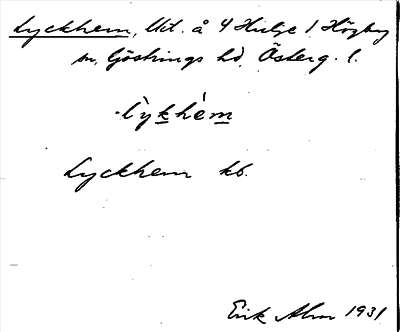 Lyckhem, Ukt. å 4 Hulje 1 Högby
sn, Göstrings hd, Österg. l.
lỳkhém
Lyckhem kb.
Erik Alm 1931